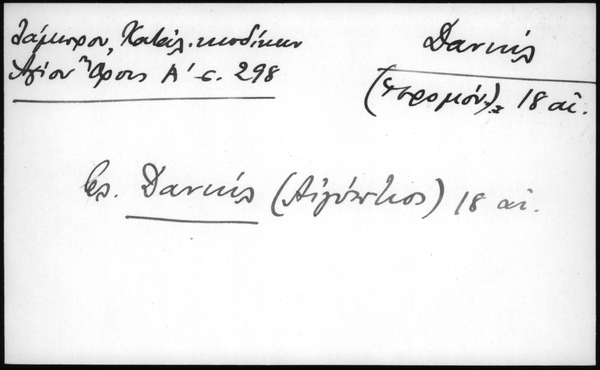 Λάμπρου, Κατάλ. κωδίκων
Ἁγίου Ὄρους Α' σ. 298
Δανιήλ
(ἱερομόν.), 18 αἰ.
βλ. Δανιήλ (Αἰγύπτιος) 18 αἰ.